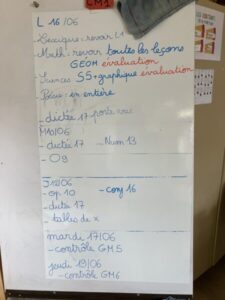 CM1
L 16/06
revoir L1
Math: revoir toutes les leçons
GEOM évaluation
Sciences S5+graphique évaluation
Poésie: en entière
- dictée 17 porte avec
M 18/06
- dictée 17 - Num 13
- O9
J 19/06
- op 10 - conj 16
- dictée 17
- tables de x
mardi 17/06
- contrôle GM5
jeudi 19/06
- contrôle GM6